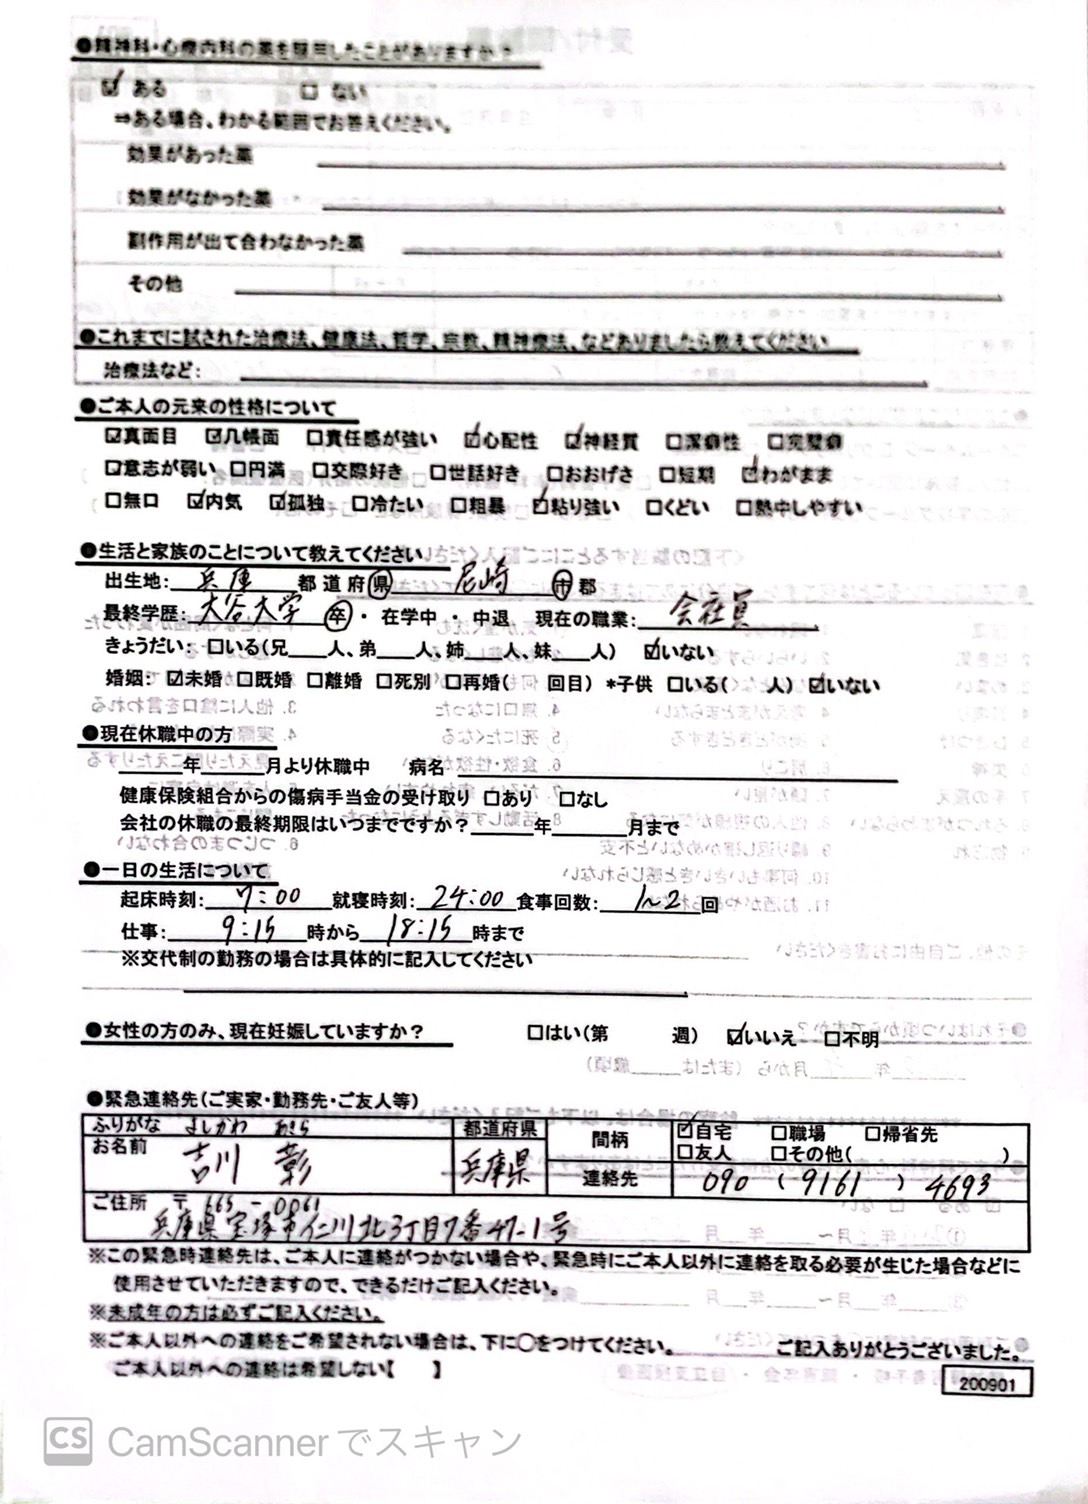 ●精神科・心療内科の薬を服用したことがありますか?
☑ ある □ ない
⇒ある場合、わかる範囲でお答えください。
効果があった薬
効果がなかった薬
副作用が出て合わなかった薬
その他
●これまでに試された治療法、健康法、哲学、宗教、精神療法、などありましたら教えてください
治療法など:
●ご本人の元来の性格について
☑真面目 ☑几帳面 □責任感が強い ☑心配性 ☑神経質 □潔癖性 □完璧癖
☑意志が弱い □円満 □交際好き □世話好き □おおげさ □短期 ☑わがまま
□無口 ☑内気 ☑孤独 □冷たい □粗暴 ☑粘り強い □くどい □熱中しやすい
●生活と家族のことについて教えてください
出生地: 兵庫 都 道 府 県 尼崎 市 郡
最終学歴: 大谷大学 卒 ・ 在学中 ・ 中退 現在の職業: 会社員
きょうだい: □いる(兄___人、弟___人、姉___人、妹___人) ☑いない
婚姻: ☑未婚 □既婚 □離婚 □死別 □再婚( 回目) *子供 □いる( 人) ☑いない
●現在休職中の方
______年______月より休職中 病名
健康保険組合からの傷病手当金の受け取り □あり □なし
会社の休職の最終期限はいつまでですか?______年______月まで
●一日の生活について
起床時刻: 7:00 就寝時刻: 24:00 食事回数: 1~2 回
仕事: 9:15 時から 18:15 時まで
※交代制の勤務の場合は具体的に記入してください
●女性の方のみ、現在妊娠していますか? □はい(第 週) ☑いいえ □不明
●緊急連絡先(ご実家・勤務先・ご友人等)
ふりがな よしかわ あきら 都道府県 間柄 ☑自宅 □職場 □帰省先
お名前 吉川 彰 兵庫県 □友人 □その他( )
連絡先 090 (9161) 4693
ご住所 〒 665 - 0061
兵庫県宝塚市仁川北3丁目7番47-1号
※この緊急時連絡先は、ご本人に連絡がつかない場合や、緊急時にご本人以外に連絡を取る必要が生じた場合などに
使用させていただきますので、できるだけご記入ください。
※未成年の方は必ずご記入ください。
※ご本人以外への連絡をご希望されない場合は、下に〇をつけてください。 ご記入ありがとうございました。
ご本人以外への連絡は希望しない【 】
200901
CS CamScannerでスキャン